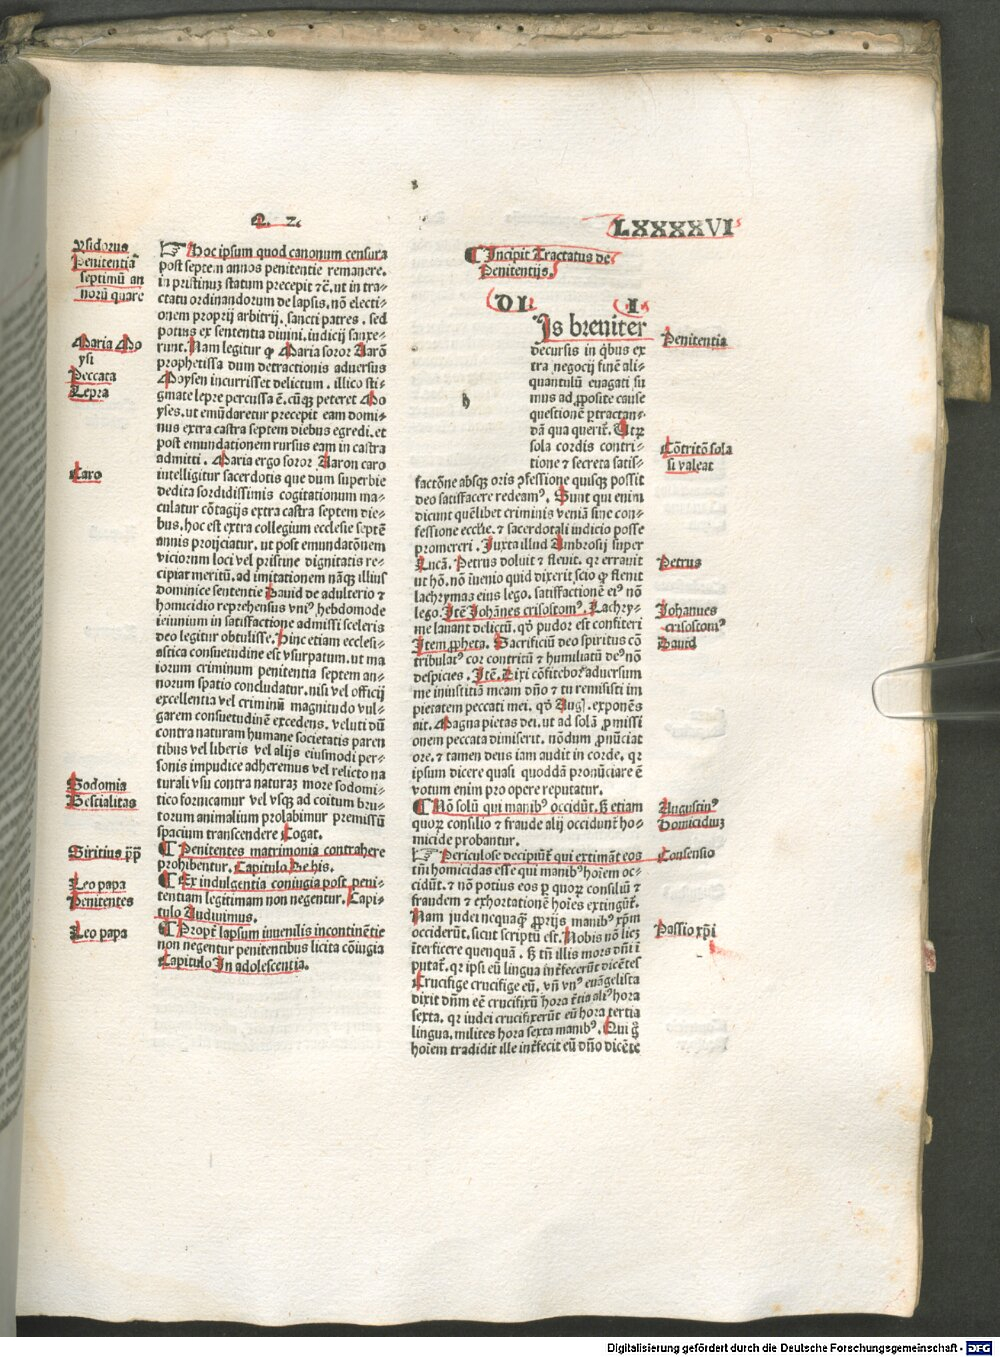 Q. 2.
LXXXXVI
ysidorus
Penitentia
septimũ an
norũ quare
Maria Mo
ysi
Peccata
Lepra
Caro
Sodomia
Bestialitas
Siritius pp̃
Leo papa
Penitentes
Leo papa
☞ Hoc ipsum quod canonum censura
post septem annos penitentie remanere.
in pristinuꝫ statum precepit ⁊c̃. ut in tra-
ctatu ordinandorum de lapsis, nõ electi-
onem proprij arbitrij. sancti patres. sed
potius ex sententia diuini. iudicij sanxe-
runt. Nam legitur ꝙ Maria soror Aarõ
prophetissa dum detractionis aduersus
Moysen incurrisset delictum. illico sti-
gmate lepre percussa ẽ. cũqꝫ peteret Mo
yses. ut emũdaretur precepit eam domi-
nus extra castra septem diebus egredi. et
post emundationem rursus eam in castra
admitti. Maria ergo soror Aaron caro
intelligitur sacerdotis que dum superbie
dedita sordidissimis cogitationum ma-
culatur cõtagijs extra castra septem die-
bus. hoc est extra collegium ecclesie septẽ
annis proijciatur. ut post emundatõnem
viciorum loci vel pristine dignitatis re-
cipiat meritũ. ad imitationem nãqꝫ illius
dominice sententie Dauid de adulterio ⁊
homicidio reprehensus vniꝰ hebdomode
ieiunium in satisfactione admissi sceleris
deo legitur obtulisse. Hinc etiam ecclesi-
astica consuetudine est vsurpatum. ut ma
iorum criminum penitentia septem an-
norum spatio concludatur. nisi vel officij
excellentia vel criminũ magnitudo vul-
garem consuetudinẽ excedens. veluti dũ
contra naturam humane societatis paren
tibus vel liberis vel alijs eiusmodi per-
sonis impudice adheremus vel relicto na
turali vsu contra naturaꝫ more sodomi-
tico fornicamur vel vsqꝫ ad coitum bru-
torum animalium prolabimur premissũ
spacium transcendere Cogat.
¶ Penitentes matrimonia contrahere
prohibentur. Capitulo De his.
¶ Ex indulgentia coniugia post peni-
tentiam legitimam non negentur. Capi-
tulo Audiuimus.
¶ Propt̃ lapsum iuuenilis incontinẽtie
non negentur penitentibus licita cõiugia
Capitulo In adolescentia.
¶ Incipit Tractatus de
Penitentijs.
DI. I.
h
Is breuiter
decursis in q̃bus ex
tra negocij finẽ ali-
quantulũ euagati su
mus ad ꝓposite cause
questionẽ ꝑtractan-
dã qua querit̃. Utrꝫ
sola cordis contri-
tione ⁊ secreta satis-
factõne absqꝫ oris ꝯfessione quisqꝫ possit
deo satisfacere redeamꝰ. Sunt qui enim
dicunt quẽlibet criminis veniã sine con-
fessione eccl̃ie. ⁊ sacerdotali iudicio posse
promereri. Juxta illud Ambrosij super
Lucã. Petrus doluit ⁊ fleuit. qꝛ errauit
ut hõ. nõ inuenio quid dixerit scio ꝙ fleuit
lachrymas eius lego. satisfactionẽ eiꝰ nõ
lego. Itẽ Johãnes crisostomꝰ. Lachry-
me lauant delictũ. qd̾ pudor est confiteri
Item ꝓpheta. Sacrificiũ deo spiritus cõ
tribulatꝰ cor contritũ ⁊ humiliatũ deꝰ nõ
despicies. Itẽ. Dixi cõfitebor aduersum
me iniustitiã meam dño ⁊ tu remisisti im
pietatem peccati mei. qd̾ Aug. exponẽs
ait. Magna pietas dei. ut ad solã ꝓmissi
onem peccata dimiserit. nõdum ꝓnũciat
ore. ⁊ tamen deus iam audit in corde. qꝛ
ipsum dicere quasi quoddã pronũciare ẽ
votum enim pro opere reputatur.
¶ Nõ solũ qui manibꝰ occidũt. sꝫ etiam
quoꝝ consilio ⁊ fraude alij occidunt̃ ho-
micide probantur.
☞ Periculose decipiũt̃ qui extimãt eos
tm̃ homicidas esse qui manibꝰ hoiem oc-
cidũt. ⁊ nõ potius eos ꝑ quoꝝ consiliũ ⁊
fraudem ⁊ exhortationẽ hoĩes extingũt̃.
Nam judei nequaqꝫ ꝓprijs manibꝰ xp̃m
occiderũt. sicut scriptũ est. Nobis nõ licꝫ
ĩterficere quenquã. sꝫ tñ illis mors dñi ĩ
putat̃. qꝛ ipsi eũ lingua int̃fecerũt dicẽtes
Crucifige crucifige eũ. vñ vnꝰ euãgelista
dixit dñm eẽ crucifixũ hora t̃tia aliꝰ hora
sexta. qꝛ iudei crucifixerũt eũ hora tertia
lingua. milites hora sexta manibꝰ. Qui g̊
hoĩem tradidit ille int̃fecit eũ dño dicẽte
Penitentia
Cõtritõ sola
si valeat
Petrus
Johannes
crisostomꝰ
Dauid
Augustinꝰ
Homicidiuꝫ
Consensio
Passio xp̃i
Digitalisierung gefördert durch die Deutsche Forschungsgemeinschaft - DFG